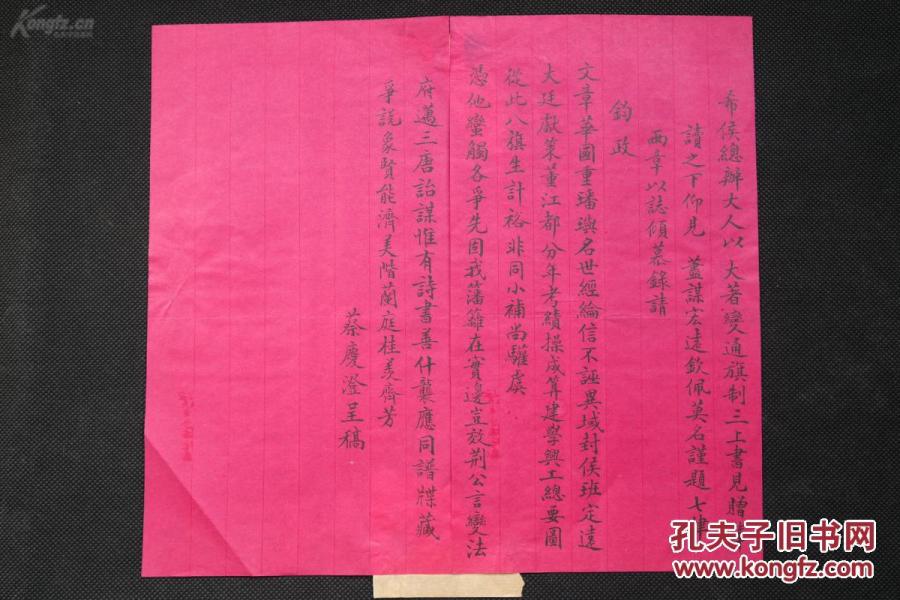 希侯總辦大人以 大著變通旗制三上書見贈
讀之下仰見 藎謀宏遠欽佩莫名謹題七律
兩章以誌傾慕錄請
鈞政
文章華國重璠璵名世經綸信不誣異域封侯班定遠
大廷獻策董江都分年考績操成算建學興工總要圖
從此八旗生計裕非同小補尚驩虞
憑他蠻觸各爭先固我藩籬在實邊豈效荊公言變法
府邁三唐詒謀惟有詩書善什襲應同譜牒藏
爭說象賢能濟美階蘭庭桂羨齊芳
蔡慶澄呈稿
Kongfz.cn
孔夫子旧书网
www.kongfz.com